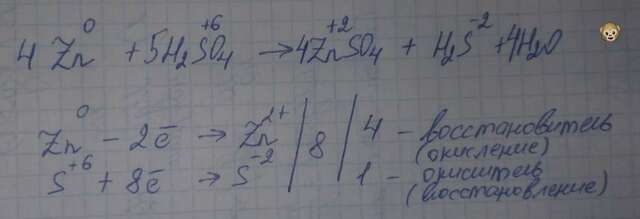 4Zn⁰ + 5H₂S⁺⁶O₄ → 4Zn⁺²SO₄ + H₂S⁻² + 4H₂O
Zn⁰ - 2ē → Zn²⁺ | 8 | 4 - восстановитель
(окисление)
S⁺⁶ + 8ē → S⁻² | | 1 - окислитель
(восстановление)